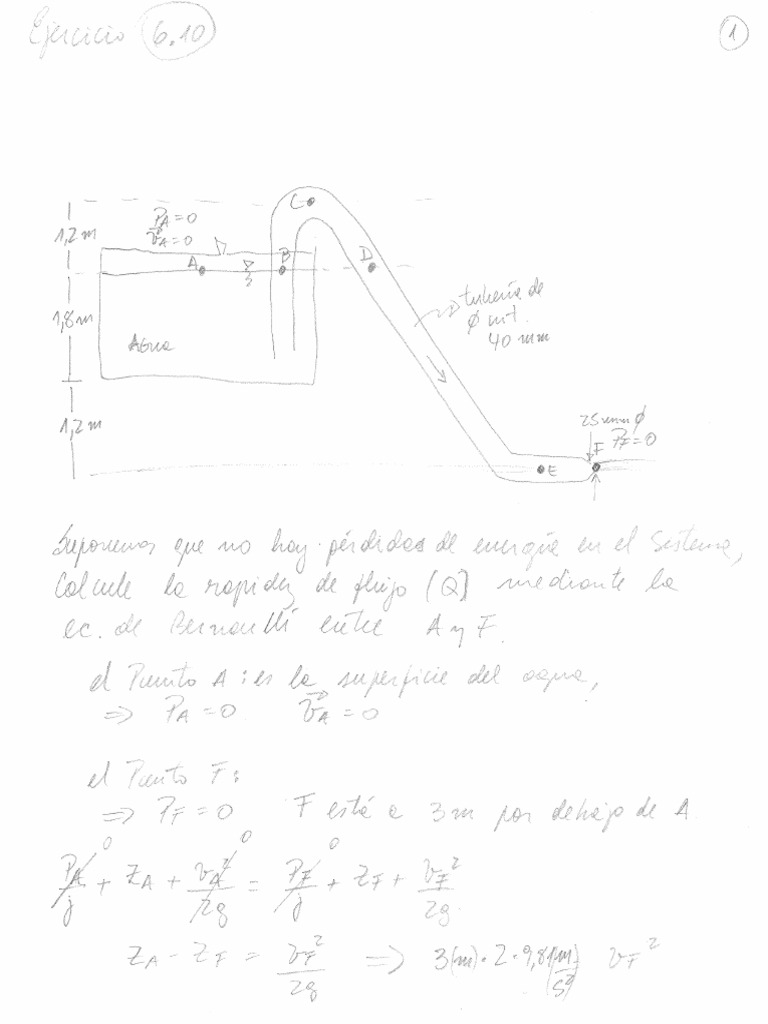 Ejercicio 6.10
1
1,2 m
1,8 m
1,2 m
PA = 0
vA = 0
A
B
C
D
Agua
tubería de
φ int.
40 mm
25 mm φ
PF = 0
F
E
Suponemos que no hay pérdidas de energía en el sistema,
Calcule la rapidez de flujo (Q) mediante la
ec. de Bernoulli entre A y F.
el Punto A: es la superficie del agua,
⇒ PA = 0 vA = 0
el Punto F:
⇒ PF = 0 F está a 3 m por debajo de A.
PA/γ + ZA + vA²/2g = PF/γ + ZF + vF²/2g
0 0 0
ZA - ZF = vF²/2g ⇒ 3(m)·2·9,81(m/s²) vF²